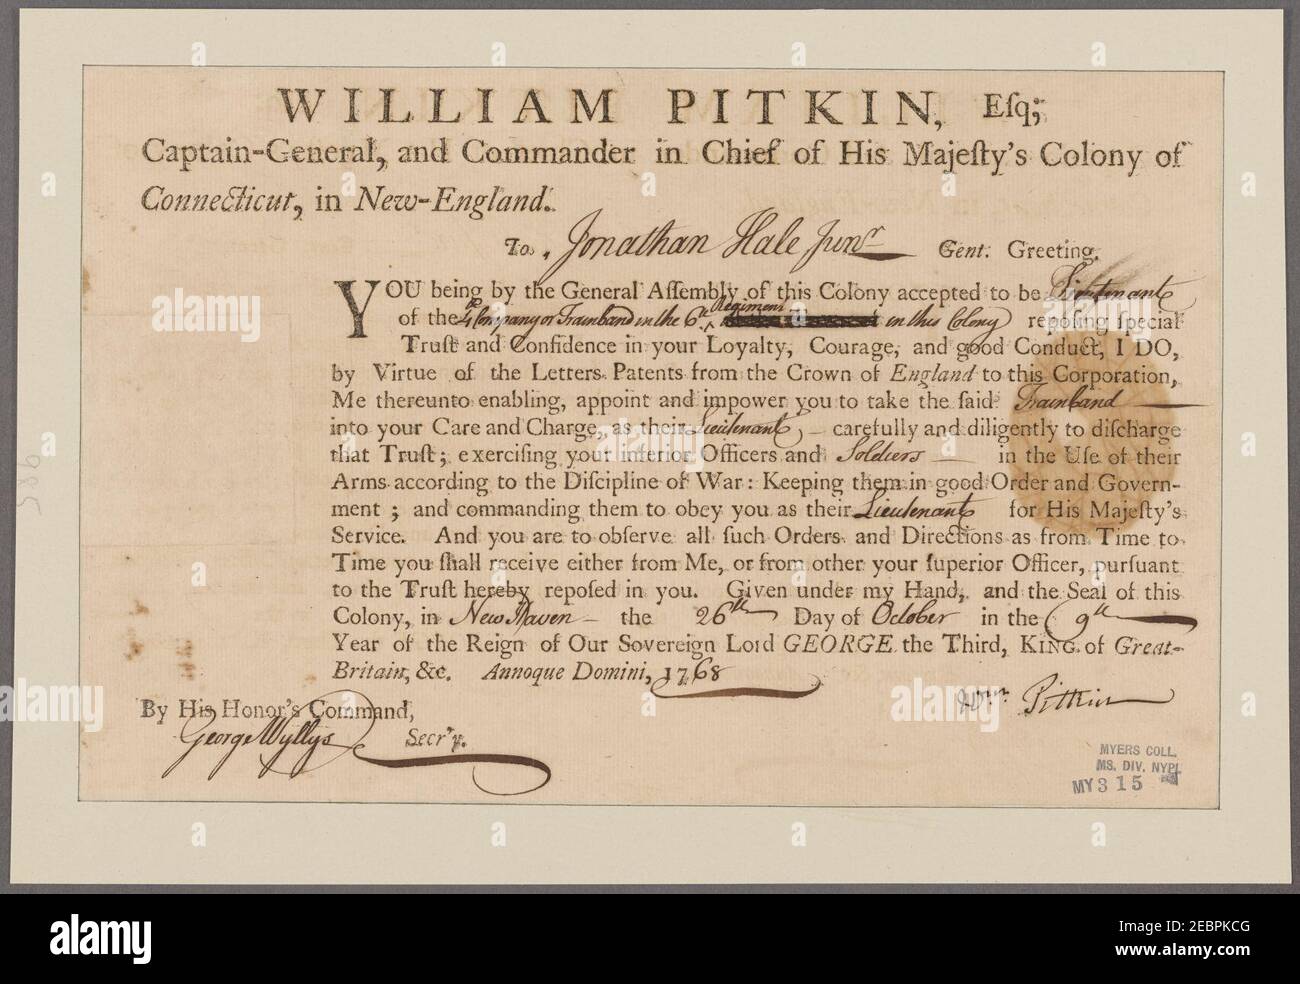 WILLIAM PITKIN, Eſq;
Captain-General, and Commander in Chief of His Majeſty's Colony of
Connecticut, in New-England.
To Jonathan Hale Junr Gent. Greeting.
YOU being by the General Aſſembly of this Colony accepted to be Lieutenant
of the 4th Company or Trainband in the 6th Regiment in this Colony repoſing ſpecial
Truſt and Confidence in your Loyalty, Courage, and good Conduct, I DO,
by Virtue of the Letters Patents from the Crown of England to this Corporation,
Me thereunto enabling, appoint and impower you to take the ſaid Trainband
into your Care and Charge, as their Lieutenant, carefully and diligently to diſcharge
that Truſt; exerciſing your inferior Officers and Soldiers in the Uſe of their
Arms according to the Diſcipline of War: Keeping them in good Order and Govern-
ment; and commanding them to obey you as their Lieutenant for His Majeſty's
Service. And you are to obſerve all ſuch Orders and Directions as from Time to
Time you ſhall receive either from Me, or from other your ſuperior Officer, purſuant
to the Truſt hereby repoſed in you. Given under my Hand, and the Seal of this
Colony, in New Haven the 26th Day of October in the 9th
Year of the Reign of Our Sovereign Lord GEORGE the Third, KING of Great-
Britain, &c. Annoque Domini, 1768
Wm Pitkin
By His Honor's Command,
George Wyllys Secr'y.
MYERS COLL.
MS. DIV. NYPL
MY 315
586
alamy
Image ID: 2EBPKCG
www.alamy.com